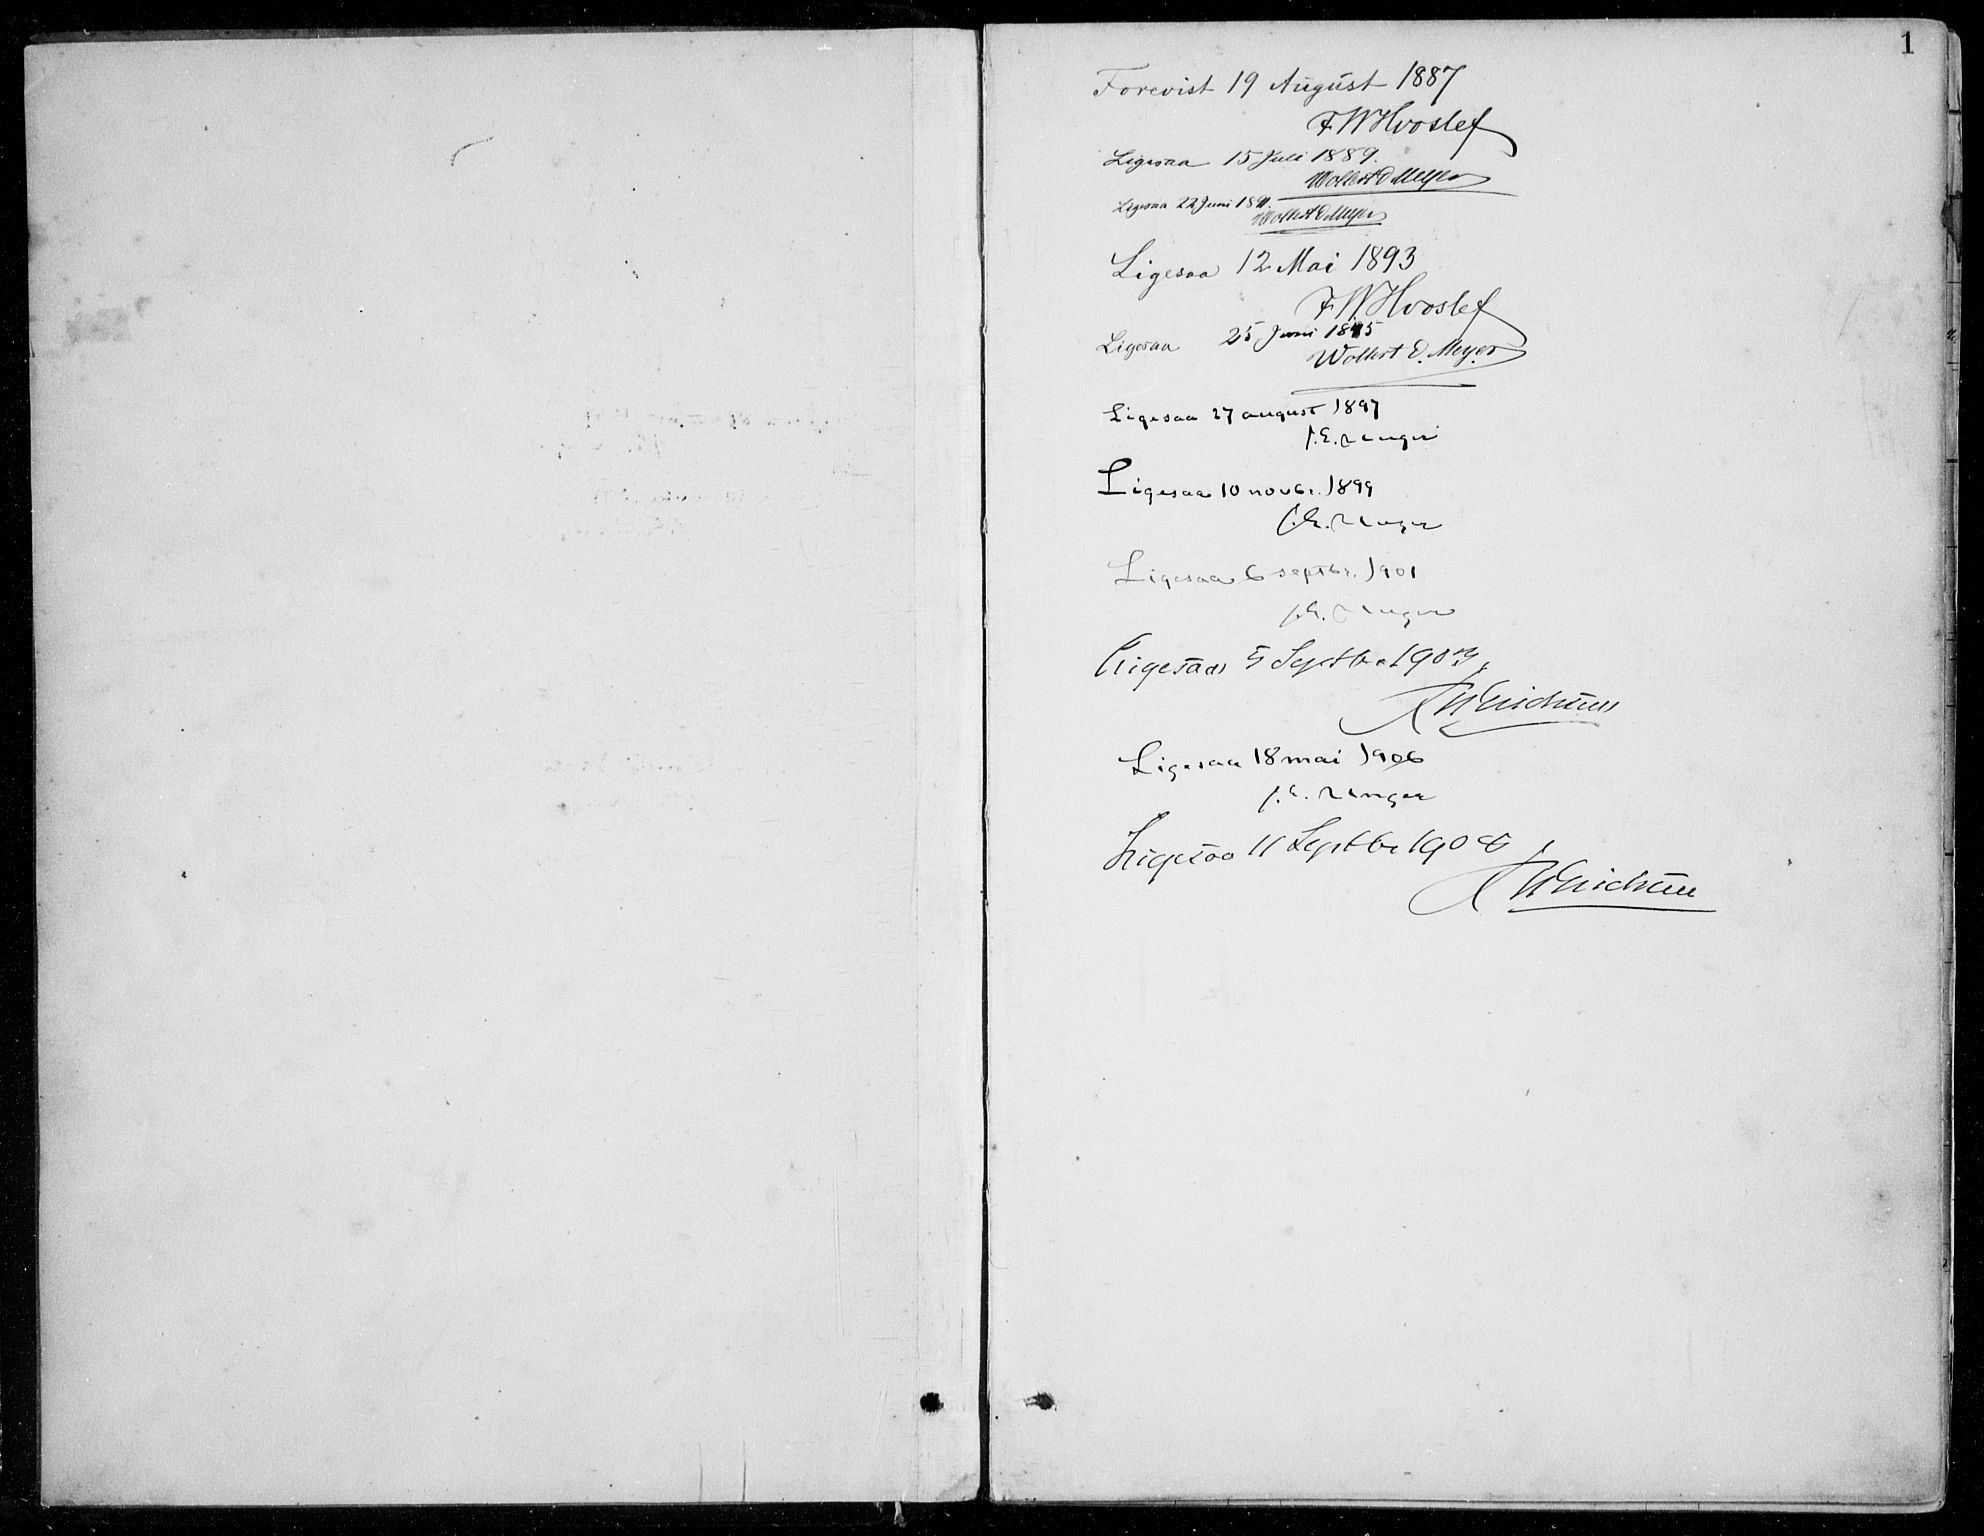 1
Forevist 19 August 1887
F W Hvoslef
Ligesaa 15 Juli 1889.
Wollert D Meyer
Ligesaa 22 Juni 1891.
Wollert D Meyer
Ligesaa 12 Mai 1893
F. W. Hvoslef
Ligesaa 25 Juni 1895
Wollert D. Meyer
Ligesaa 27 august 1897
J.E. Unger
Ligesaa 10 novbr. 1899
J.E. Unger
Ligesaa 6 septbr. 1901
J.E. Unger
Ligesaa 5 Septbr 1903,
Ligesaa 18 mai 1906
J.E. Unger
Ligesaa 11 Septbr 1908,